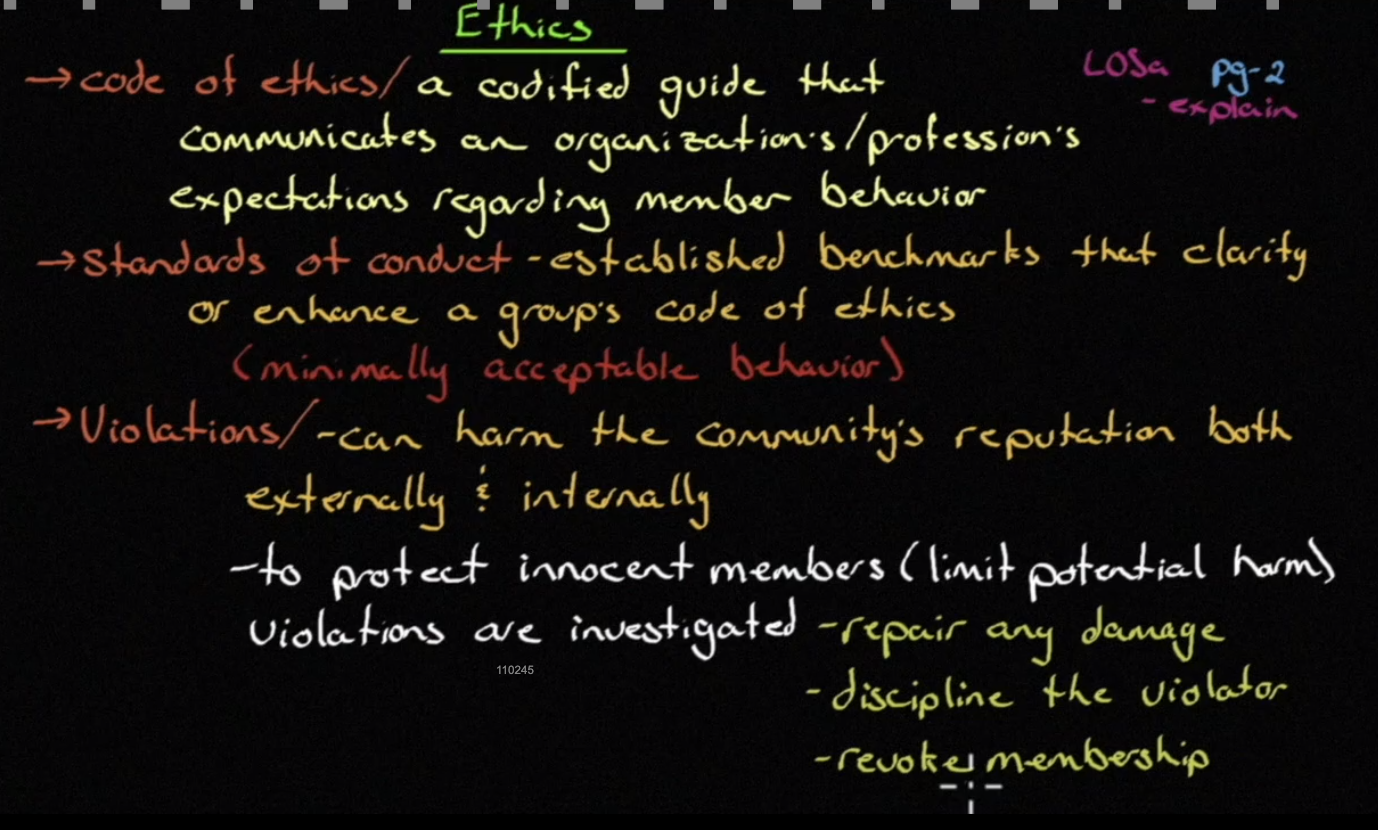 Ethics
LOSa pg-2
- explain
→ code of ethics/ a codified guide that
communicates an organization's/profession's
expectations regarding member behavior
→ Standards of conduct - established benchmarks that clarity
or enhance a group's code of ethics
(minimally acceptable behavior)
→ Violations/ - can harm the community's reputation both
externally & internally
- to protect innocent members (limit potential harm)
violations are investigated - repair any damage
110245
- discipline the violator
- revoke membership